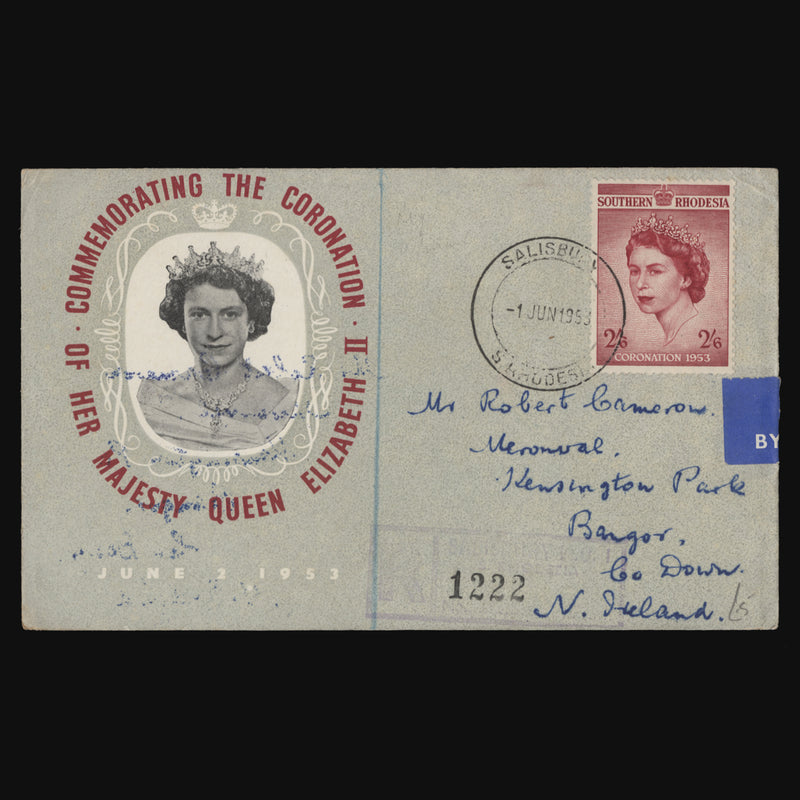 · COMMEMORATING THE CORONATION ·
OF HER MAJESTY QUEEN ELIZABETH II
JUNE 2, 1953
SOUTHERN RHODESIA
2/6 2/6
CORONATION 1953
SALISBURY
-1 JUN 1953
S. RHODESIA
Mr Robert Cameron.
Meronval.
Kensington Park
Bangor,
Co Down.
N. Ireland.
BY
1222